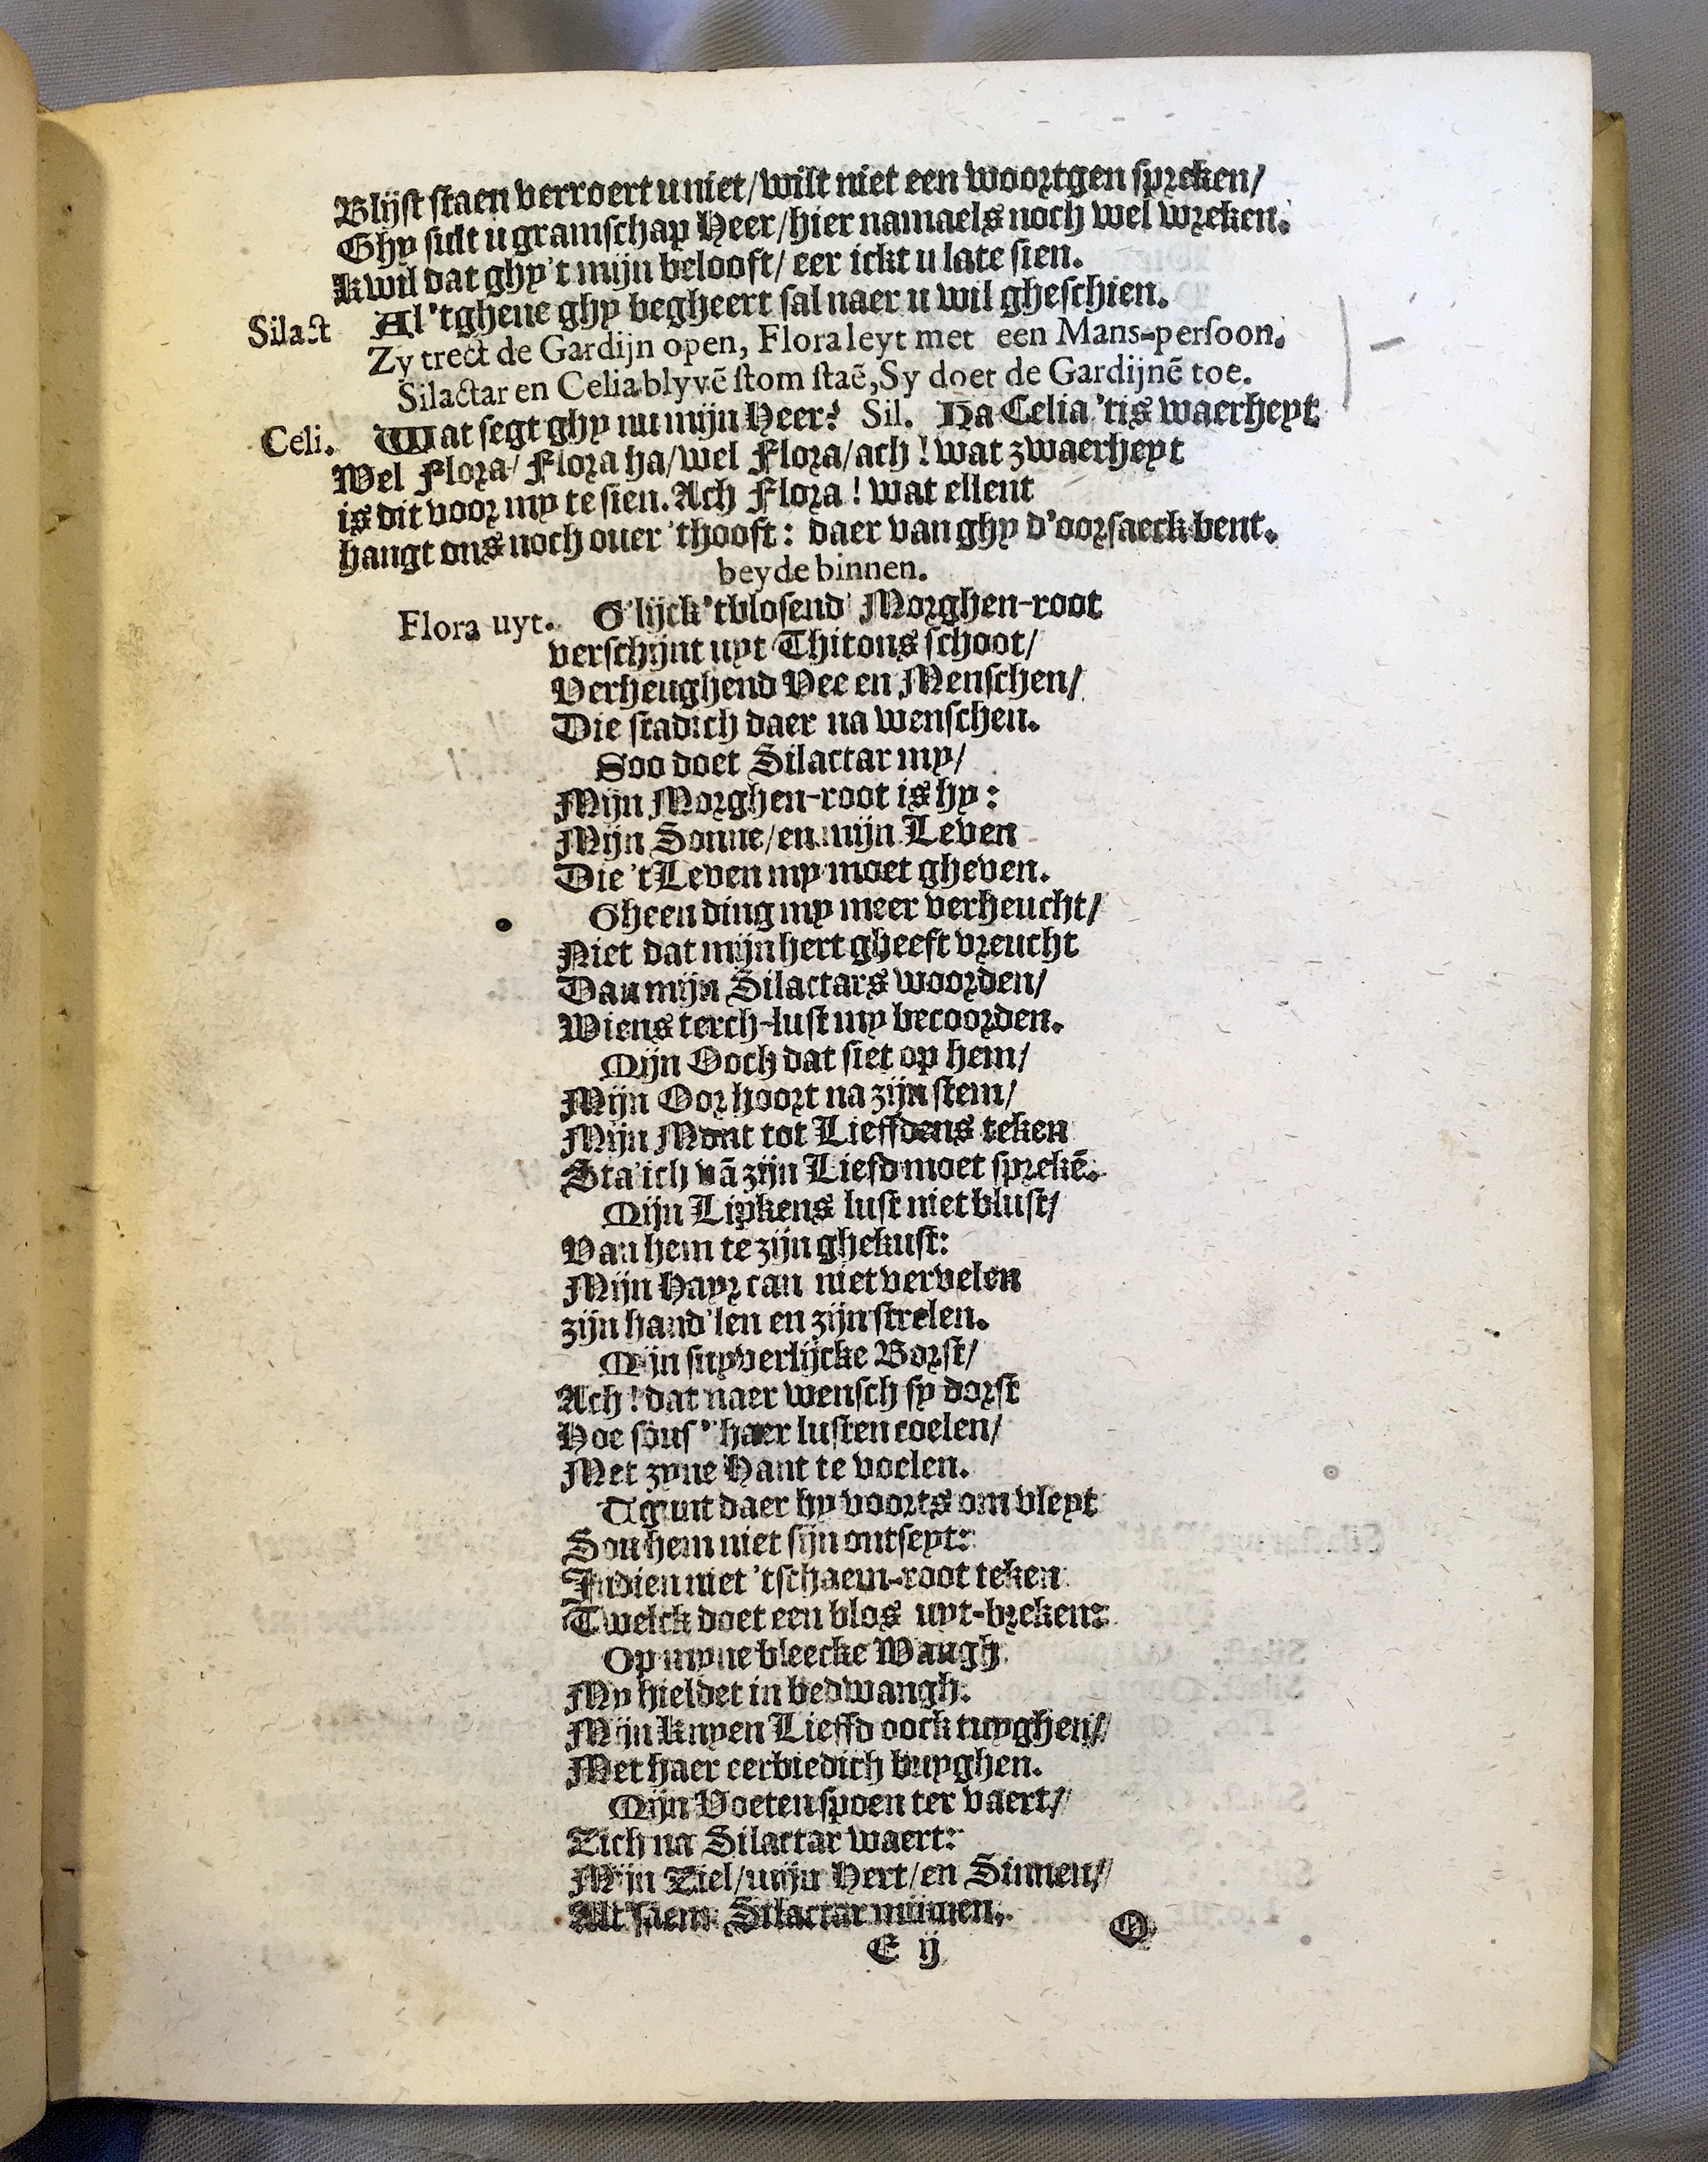 Blijft staen verroert u niet/wilt niet een woortgen spreken/
Ghy sult u gramschap Heer/hier namaels noch wel wreken.
Kwil dat ghy't mijn belooft/ eer ickt u late sien.
Silact Al 'tghene ghy begheert sal naer u wil gheschien.
Zy trect de Gardijn open, Flora leyt met een Mans-persoon.
Silactar en Celia blyvē stom staē, Sy doet de Gardijnē toe.
Celi. Wat segt ghy nu mijn Heer? Sil. Ha Celia 'tis waerheyt
Wel Flora/ Flora ha/wel Flora/ach! wat zwaerheyt
is dit voor my te sien. Ach Flora! wat ellent
hangt ons noch over 'thooft: daer van ghy d'oorsaeck bent.
beyde binnen.
Flora uyt. G'lijck 'tblosend' Morghen-root
verschijnt uyt Thitons schoot/
Verheughend Vee en Menschen/
Die stadich daer na wenschen.
Soo doet Silactar my/
Mijn Morghen-root is hy:
Mijn Sonne/en mijn Leven
Die 't Leven my moet gheven.
Gheen ding my meer verheucht/
Niet dat mijn hert gheeft vreucht
Dan mijn Silactars woorden/
Wiens terch-lust my becoorden.
Mijn Ooch dat siet op hem/
Mijn Oor hoort na zijn stem/
Mijn Mont tot Lieffdens teken
Sta'ich vā zijn Liefd moet sprekē.
Mijn Lipkens lust niet blust/
Van hem te zijn ghekust:
Mijn Hayr can niet vervelen
zijn hand'len en zijn strelen.
Mijn suyverlijcke Borst/
Ach! dat naer wensch sy dorst
Hoe sous' haer lusten coelen/
Met zyne Hant te voelen.
Tgunt daer hy voorts om vleyt
Sou hem niet sijn ontseyt:
Indien niet 'tschaem-root teken
Twelck doet een blos uyt-breken:
Op myne bleecke Wangh
My hieldet in bedwangh.
Mijn Knyen Lieffd oock tuyghen/
Met haer eerbiedich buyghen.
Mijn Voeten spoen ter vaert/
Zich na Silactar waert:
Mijn Ziel/mijn Hert/en Sinnen/
Alt'saem Silactar minnen.
E ij O